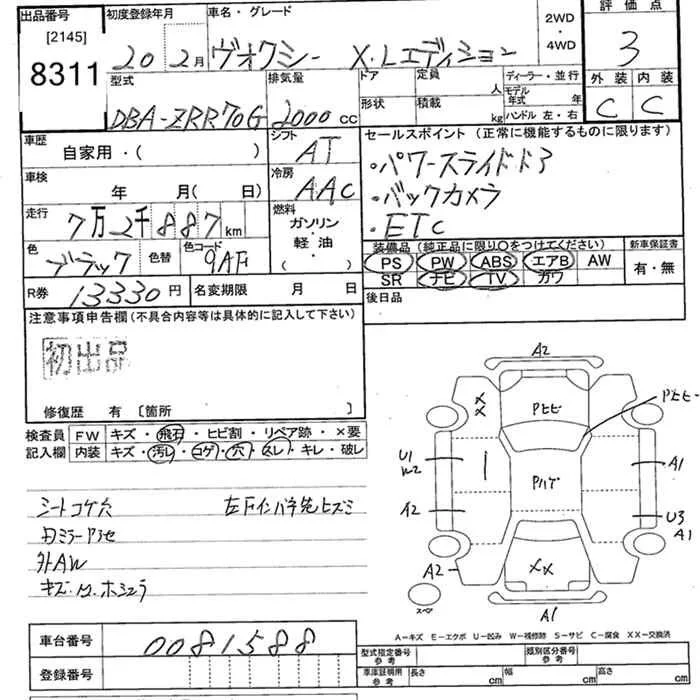 出品番号
[2145]
8311
初度登録年月
20 2月
車名・グレード
ヴオクシー X・Lエディション
2WD
・
4WD
評価点
3
外装 内装
C C
型式
DBA-ZRR70G
排気量
2000 cc
ドア
定員
人
形状
積載
kg
ディーラー・並行
モデル年式 年
ハンドル 左・右
車歴
自家用・( )
シフト
AT
車検
年 月( 日)
冷房
AAC
走行
7万2千887km
燃料
ガソリン・
軽油・
( )
色
ブラック
色替
色コード
9AF
R券 13330円
名変期限 月 日
セールスポイント(正常に機能するものに限ります)
・パワースライドドア
・バックカメラ
・ETC
装備品(純正品に限り○をつけてください)
PS PW ABS エアB AW
SR ナビ TV カワ
新車保証書
有・無
後日品
注意事項申告欄(不具合内容等は具体的に記入して下さい)
初出品
修復歴 有 [箇所 ]
検査員
記入欄
FW キズ・飛石・ヒビ割・リペア跡・×要
内装 キズ・汚レ・コゲ・穴・スレ・キレ・破レ
シートコゲ穴
外AW
A2
U1
A2
A2
A1
U3
A1
A1
A-キズ E-エクボ U-凹み W-補修跡 S-サビ C-腐食 XX-交換済
車台番号
0081588
登録番号
型式指定番号
参考
類別区分番号
参考
車庫証明用
参考
長さ cm
幅 cm
高さ cm